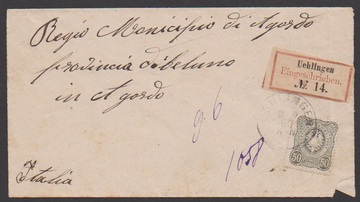 Regio Municipio di Agordo
provincia di beluno
in Agordo
Uehlingen
Eingeschrieben.
№ 14.
g 6
1058
50 50
Italia